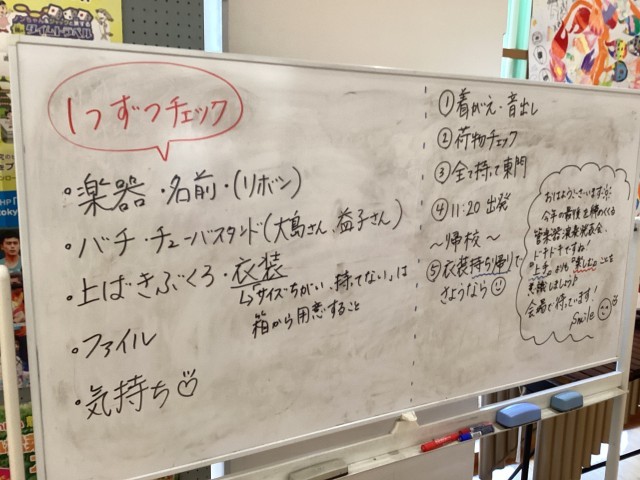 1つずつチェック
・楽器・名前・(リボン)
・バチ・チューバスタンド(大島さん、益子さん)
・上ばきぶくろ・衣装
↳「サイズちがい、持ってない」は
箱から用意すること
・ファイル
・気持ち♡
①着がえ・音出し
②荷物チェック
③全て持って東門
④11:20 出発
〜帰校〜
⑤衣装持ち帰りで
さようなら☺
おはようございます
今年の最後を締めくくる
管楽器演奏発表会、
ドキドキですね!
"上手"よりも"楽しむ"ことを
意識しましょう♪
会場で待っています!
Smile☺
タイムトラベル
HP